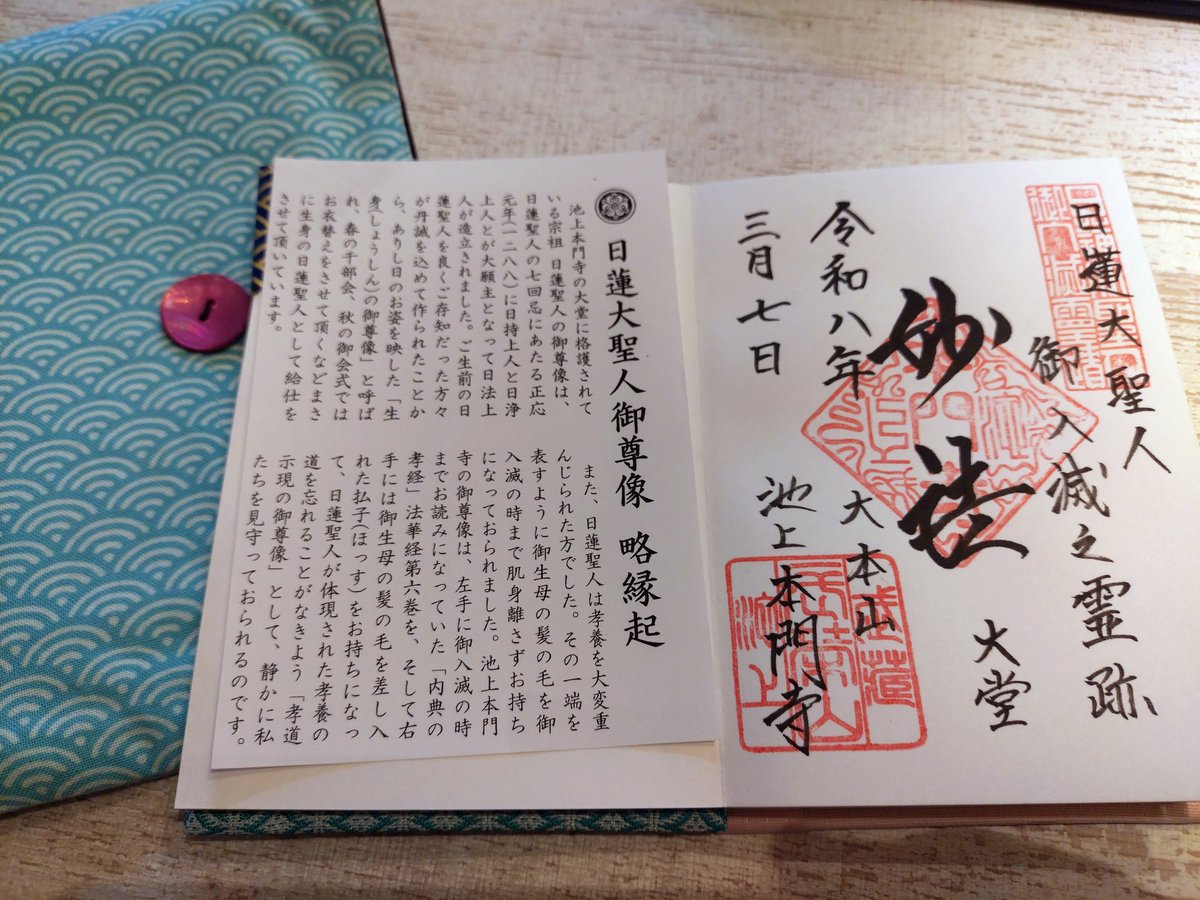 日蓮大聖人
御入滅之霊跡
大堂
妙法
大本山
池上本門寺
令和八年
三月七日
日蓮大聖人御尊像 略縁起
池上本門寺の大堂に格護されて
いる宗祖 日蓮聖人の御尊像は、
日蓮聖人の七回忌にあたる正応
元年(一二八八)に日持上人と日浄
上人とが大願主となって日法上
人が造立されました。ご生前の日
蓮聖人を良くご存知だった方々
が丹誠を込めて作られたことか
ら、ありし日のお姿を映した「生
身(しょうしん)の御尊像」と呼ば
れ、春の千部会、秋の御会式では
お衣替えをさせて頂くなどまさ
に生身の日蓮聖人として給仕を
させて頂いています。
また、日蓮聖人は孝養を大変重
んじられた方でした。その一端を
表すように御生母の髪の毛を御
入滅の時まで肌身離さずお持ち
になっておられました。池上本門
寺の御尊像は、左手に御入滅の時
までお読みになっていた「内典の
孝経」法華経第六巻を、そして右
手には御生母の髪の毛を差し入
れた払子(ほっす)をお持ちになっ
て、日蓮聖人が体現された孝養の
道を忘れることがなきよう「孝道
示現の御尊像」として、静かに私
たちを見守っておられるのです。